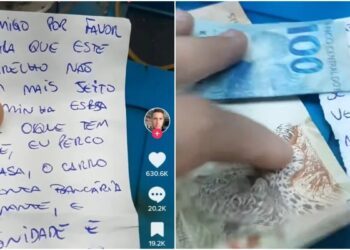 MIGO POR FAVOR
QUE ESTE
RELHO NÃO
M MAIS JEITO
MINHA
OQUE TEM
EU PERCO
ASA, O CARRO
ONTA BANCÁRIA
E
NIDADE E
630.6K
20.2K
19.2K
100